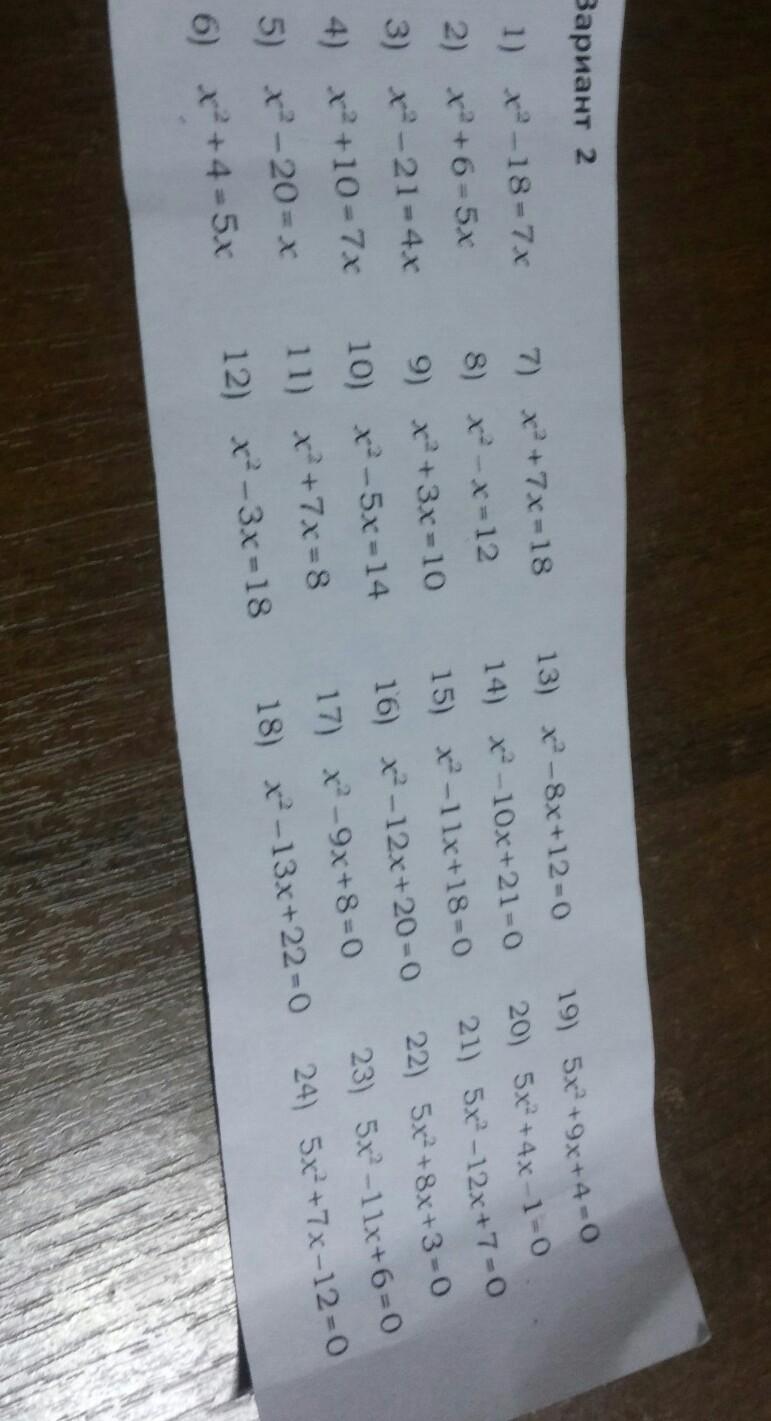 Вариант 2
1) x² – 18 = 7x
2) x² + 6 = 5x
3) x² – 21 = 4x
4) x² + 10 = 7x
5) x² – 20 = x
6) x² + 4 = 5x
7) x² + 7x = 18
8) x² – x = 12
9) x² + 3x = 10
10) x² – 5x = 14
11) x² + 7x = 8
12) x² – 3x = 18
13) x² – 8x + 12 = 0
14) x² – 10x + 21 = 0
15) x² – 11x + 18 = 0
16) x² – 12x + 20 = 0
17) x² – 9x + 8 = 0
18) x² – 13x + 22 = 0
19) 5x² + 9x + 4 = 0
20) 5x² + 4x – 1 = 0
21) 5x² – 12x + 7 = 0
22) 5x² + 8x + 3 = 0
23) 5x² – 11x + 6 = 0
24) 5x² + 7x – 12 = 0